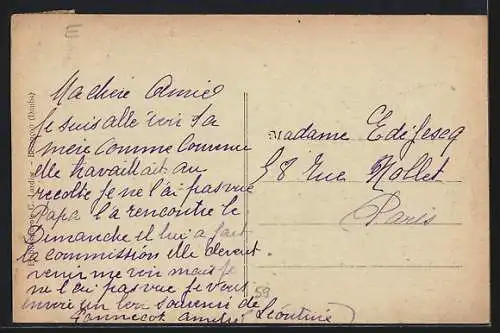 Ma chère Amie
Je suis allé voir Sa
mère comme convenu
elle travaillait au
recolte je ne l'ai pas vue
Papa l'a rencontré le
Dimanche il lui a fait
la commission elle devait
venir me voir mais je
ne l'ai pas vue je vous
envoie un bon souvenir de Léontine
Madame
58 rue Mollet
Paris
59